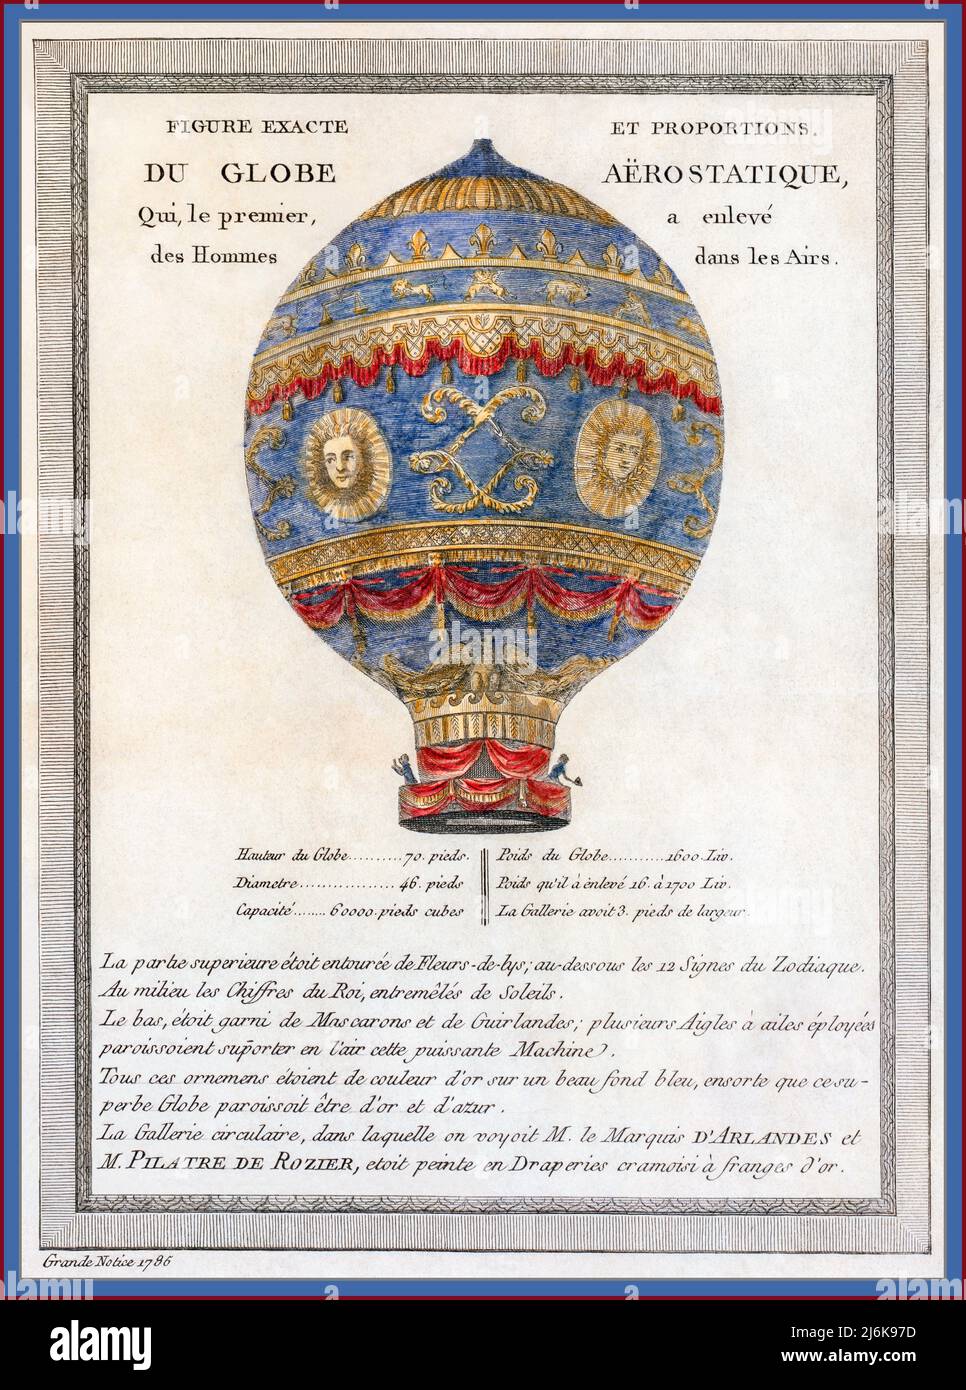 FIGURE EXACTE ET PROPORTIONS.
DU GLOBE AËROSTATIQUE,
Qui, le premier, a enlevé
des Hommes dans les Airs.
Hauteur du Globe..........70. pieds.
Diametre.................46. pieds
Capacité........60000. pieds cubes
Poids du Globe...........1600. Liv.
Poids qu'il à énlevé 16. à 1700 Liv.
La Gallerie avoit 3. pieds de largeur.
La partie superieure étoit entourée de Fleurs-de-lys; au-dessous les 12 Signes du Zodiaque.
Au milieu les Chiffres du Roi, entremêlés de Soleils.
Le bas, étoit garni de Mascarons et de Guirlandes; plusieurs Aigles à ailes éployées
paroissoient suporter en l'air cette puissante Machine.
Tous ces ornemens étoient de couleur d'or sur un beau fond bleu, ensorte que ce su-
perbe Globe paroissoit être d'or et d'azur.
La Gallerie circulaire, dans laquelle on voyoit M. le Marquis D'ARLANDES et
M. PILATRE DE ROZIER, etoit peinte en Draperies cramoisi à franges d'or.
Grande Notice 1786
alamy
Image ID: 2J6K97D
www.alamy.com